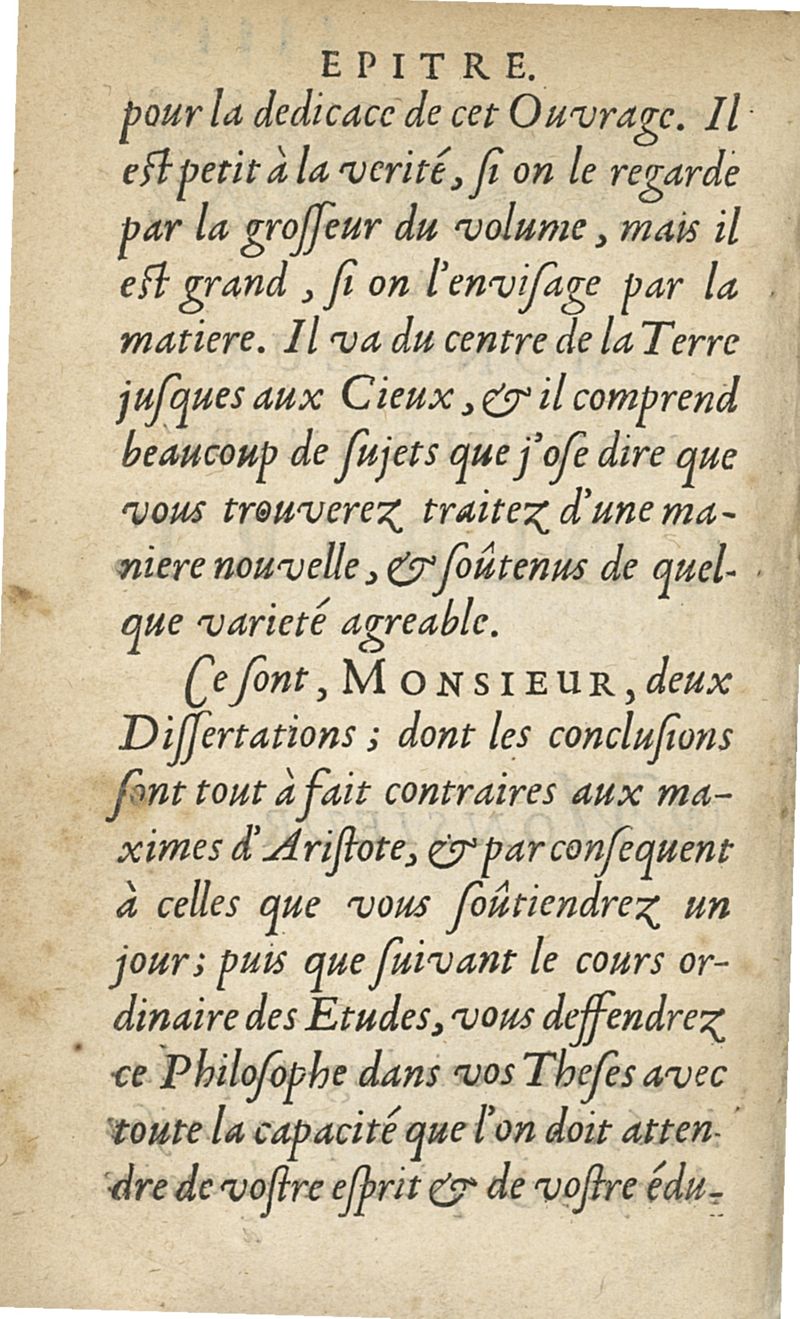 EPITRE.
pour la dedicace de cet Ouvrage. Il
eſt petit à la verité, ſi on le regarde
par la groſſeur du volume, mais il
eſt grand, ſi on l'enviſage par la
matiere. Il va du centre de la Terre
juſques aux Cieux, & il comprend
beaucoup de ſujets que j'oſe dire que
vous trouverez traitez d'une ma-
niere nouvelle, & ſoûtenus de quel-
que varieté agreable.
Ce ſont, MONSIEUR, deux
Diſſertations; dont les concluſions
ſont tout à fait contraires aux ma-
ximes d'Ariſtote, & par conſequent
à celles que vous ſoûtiendrez un
jour; puis que ſuivant le cours or-
dinaire des Etudes, vous deffendrez
ce Philoſophe dans vos Theſes avec
toute la capacité que l'on doit atten-
dre de voſtre eſprit & de voſtre édu-